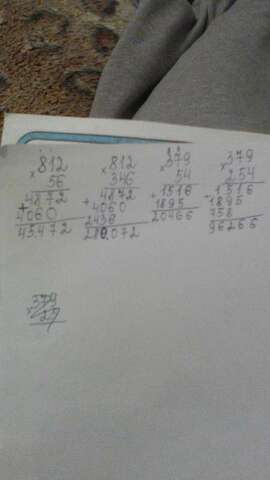 812
× 56
4872
+
4060
45.472
812
× 346
4872
+ 4060
2436
280.072
379
× 54
1516
+ 1895
20466
379
× 254
1516
+ 1895
758
96266
379
× 27